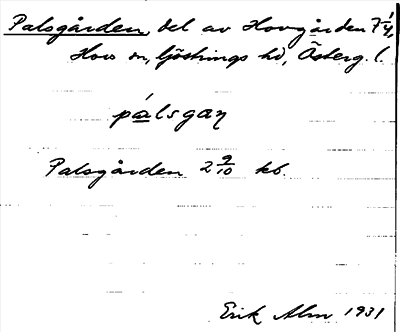 Palsgården, del av Hovgården 7 1/4,
Hovs sn, Göstrings hd, Österg. l.
pálsgaɳ
Palsgården 2 9/10 kb.
Erik Alm 1931